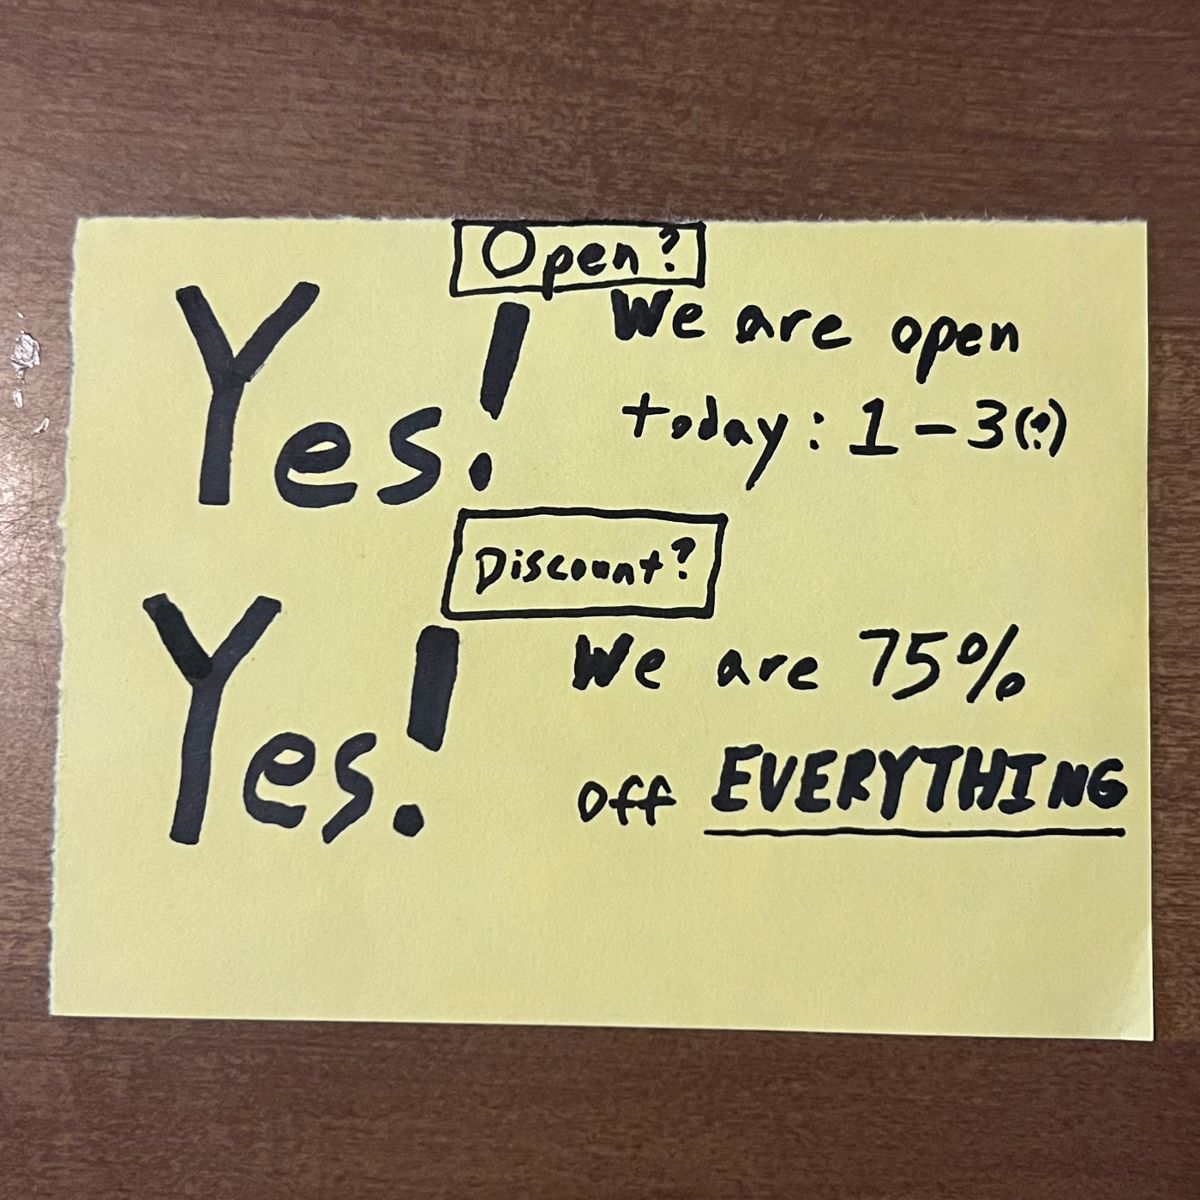 Open?
Yes!
We are open
today: 1-3(?)
Discount?
Yes!
We are 75%
off EVERYTHING